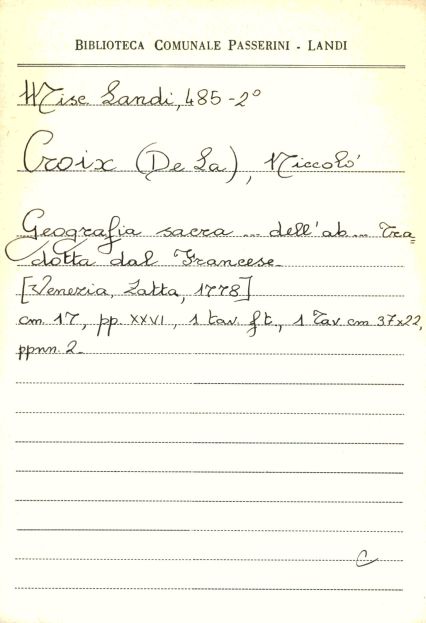 BIBLIOTECA COMUNALE PASSERINI - LANDI
Misc. Landi, 485-2°
Croix (De La), Niccolò
Geografia sacra ... dell'ab... Tra=
dotta dal Francese.
[Venezia, Zatta, 1778]
cm. 17, pp. XXVI, 1 tav. f.t., 1 Tav. cm 37x22,
ppnn. 2.
C